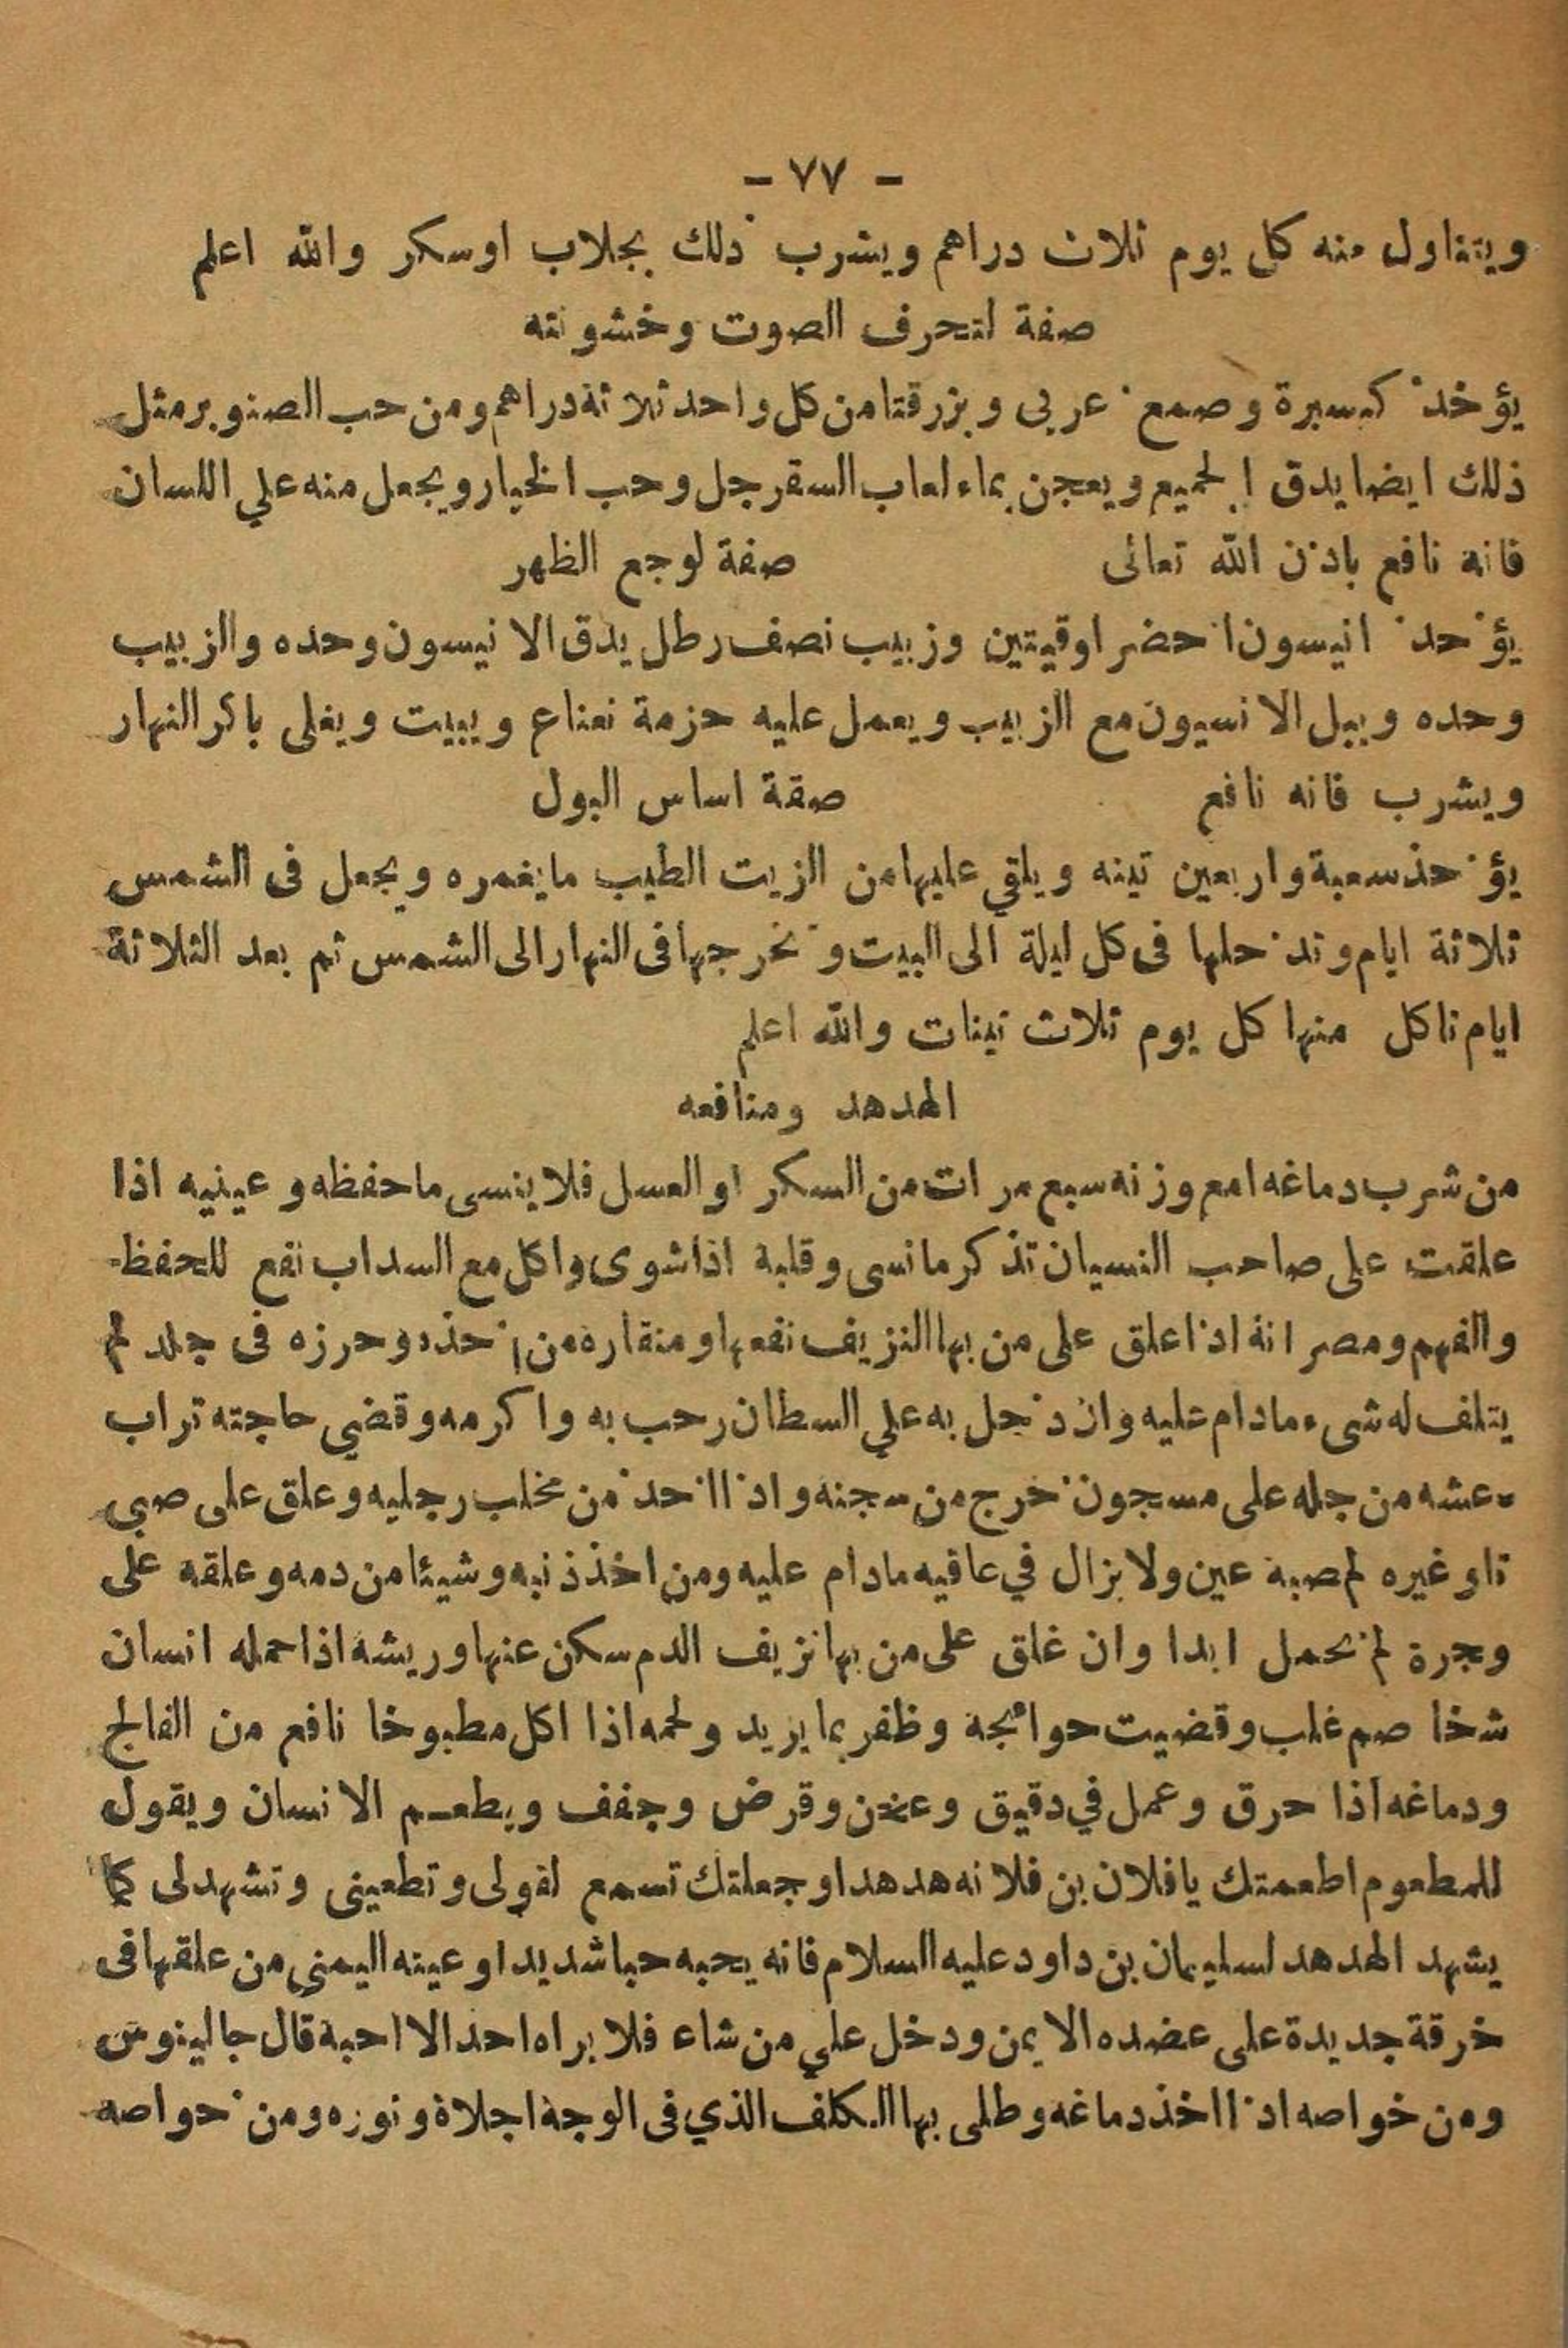 - ٧٧ -
ويتناول منه كل يوم ثلاث دراهم ويشرب ذلك بجلاب اوسكر والله اعلم
صفة لتحرف الصوت وخشونته
يؤخذ كسبرة وصمع عربى وبزرقتا من كل واحد ثلاثة دراهم ومن حب الصنوبر مثل
ذلك ايضا يدق الجميع ويعجن بماء لعاب السقرجل وحب الخيار ويجعل منه علي اللسان
فانه نافع باذن الله تعالى صفة لوجع الظهر
يؤحد انيسون احضر اوقيتين وزبيب نصف رطل يدق الانيسون وحده والزبيب
وحده ويبل الانسيون مع الزبيب ويعمل عليه حزمة نعناع ويبيت ويغلى باكر النهار
ويشرب فانه نافع صقة اساس البول
يؤحذ سعبة واربعين تينه ويلقي عليها من الزيت الطيب ما يغمره ويجعل فى الشمس
ثلاثة ايام وتدحلها فى كل ليلة الى البيت وتخرجها فى النهار الى الشمس ثم بعد الثلاثة
ايام تاكل منها كل يوم ثلاث تينات والله اعلم
الهدهد ومنافعه
من شرب دماغه امع وزنه سبع مرات من السكر او العسل فلا ينسى ما حفظه وعينيه اذا
علقت على صاحب النسيان تذكر مانسى وقلبة اذا شوى واكل مع السداب نفع للحفظ
والفهم ومصرانة اذا علق على من بها النزيف نفعها ومنقاره من اخذه وحرزه فى جلد لم
يتلف له شىء مادام عليه وان دخل به علي السطان رحب به واكرمه وقضي حاجته تراب
عشه من جله على مسجون خرج من سجنه واذا احذ من مخلب رجليه وعلق على صبى
تاو غيره لم صبة عين ولا بزال في عافيه مادام عليه ومن اخذ ذنبه وشيئا من دمه وعلقه على
وجرة لم تحمل ابدا وان غلق على من بها نزيف الدم سكن عنها وريشه اذا حمله انسان
شخا صم غلب وقضيت حوائجة وظفر بما يريد ولحمه اذا اكل مطبوخا نافع من الفالج
ودماغه اذا حرق وعمل في دقيق وعخن وقرض وجفف ويطعم الانسان ويقول
للمطعوم اطعمتك يا فلان بن فلانه هدهدا وجعلتك تسمع لقولى وتطعينى وتشهد لى كما
يشهد الهدهد لسليمان بن داود عليه السلام فانه يحبه حبا شديدا وعينه اليمنى من علقها فى
خرقة جديدة على عضده الايمن ودخل علي من شاء فلا براه احد الا احبة قال جالينوس
ومن خواصه اذا اخذ دماغه وطلى بها الكلف الذي فى الوجة اجلاة ونوره ومن حواصه